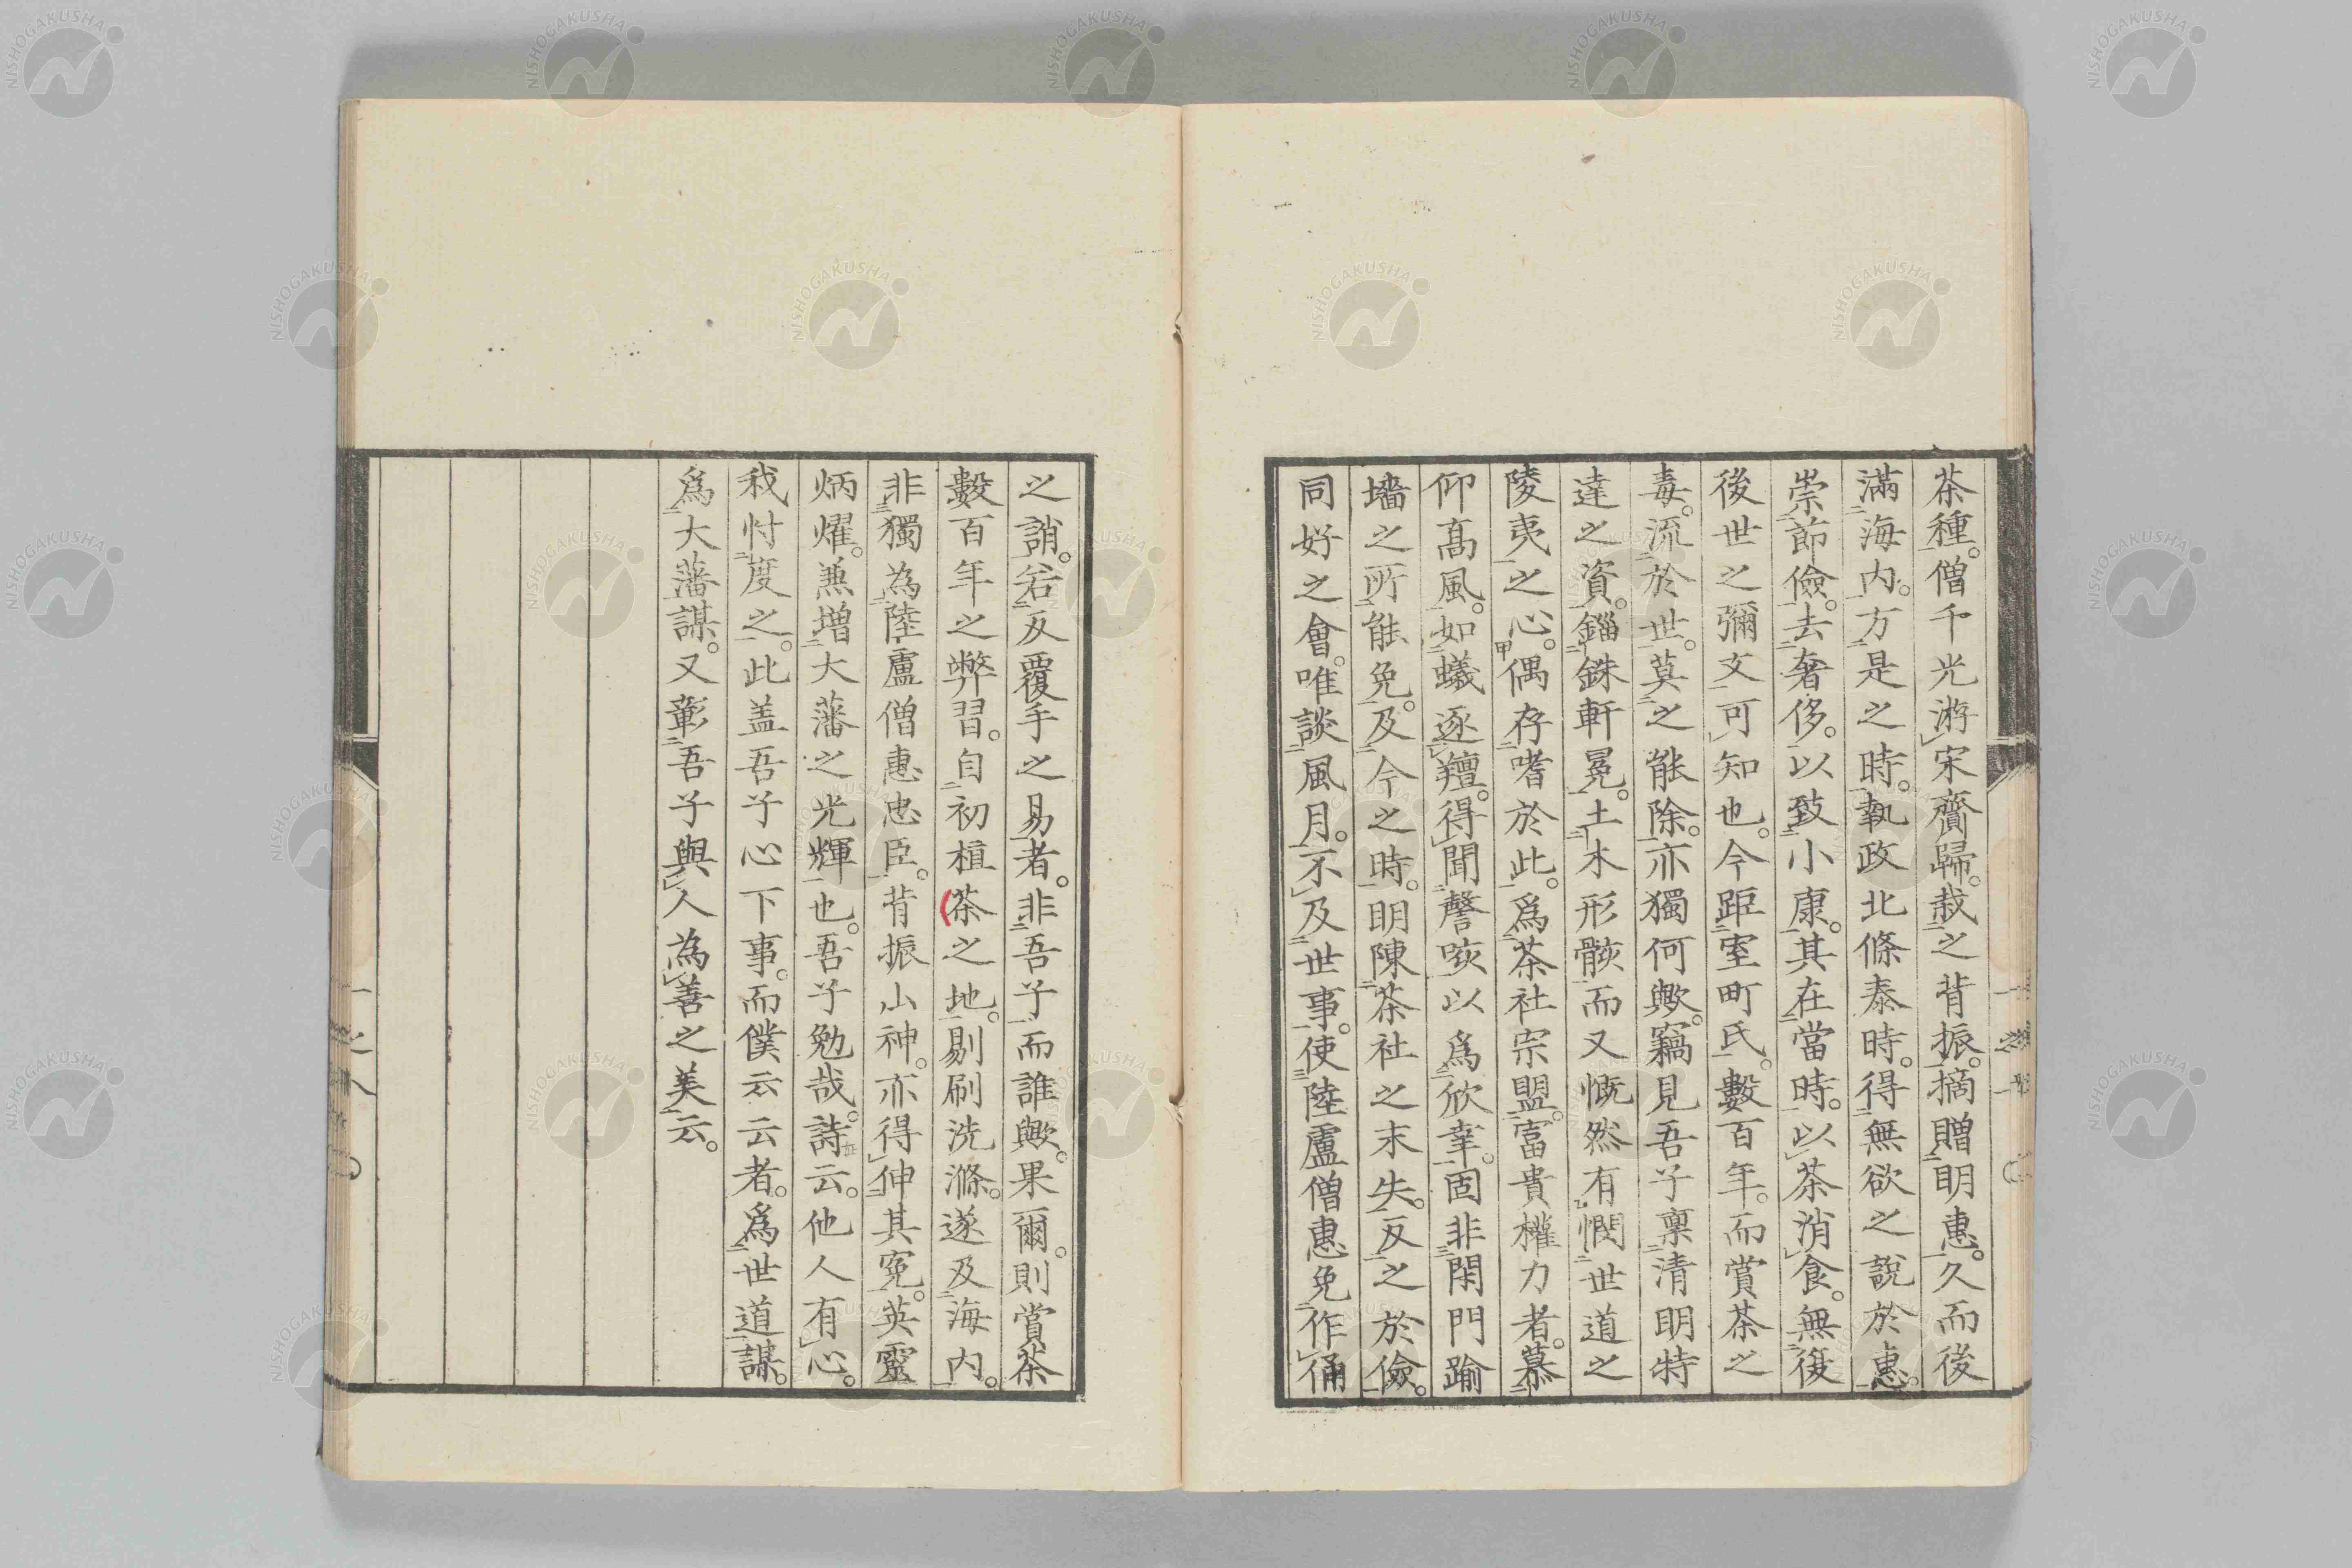 茶種。僧千光游宋齎歸。栽之背振。摘贈明惠。久而後
滿海内。方是之時。執政北條泰時。得無欲之說於惠。
崇節儉。去奢侈。以致小康。其在當時。以茶消食。無復
後世之彌文可知也。今距室町氏。數百年。而賞茶之
毒。流於世。莫之能除。亦獨何歟。竊見吾子禀清明特
達之資。錙銖軒冕。土木形骸。而又慨然有憫世道之
陵夷之心。偶存嗜於此。爲茶社宗盟。富貴權力者。慕
仰高風。如蟻逐羶。得聞謦咳以爲欣幸。固非閑門踰
墻之所能免。及今之時。明陳茶社之末失。反之於儉。
同好之會。唯談風月。不及世事。使陸盧僧惠免作俑
之誚。若反覆手之易者。非吾子而誰歟。果爾。則賞茶
數百年之弊習。自初植茶之地。剔刷洗滌。遂及海内。
非獨為陸盧僧惠忠臣。背振山神。亦得伸其冤。英靈
炳燿。兼增大藩之光輝也。吾子勉哉。詩云。他人有心。
我忖度之。此盖吾子心下事。而僕云云者。爲世道謀。
爲大藩謀。又彰吾子與人為善之美云。
NISHOGAKUSHA